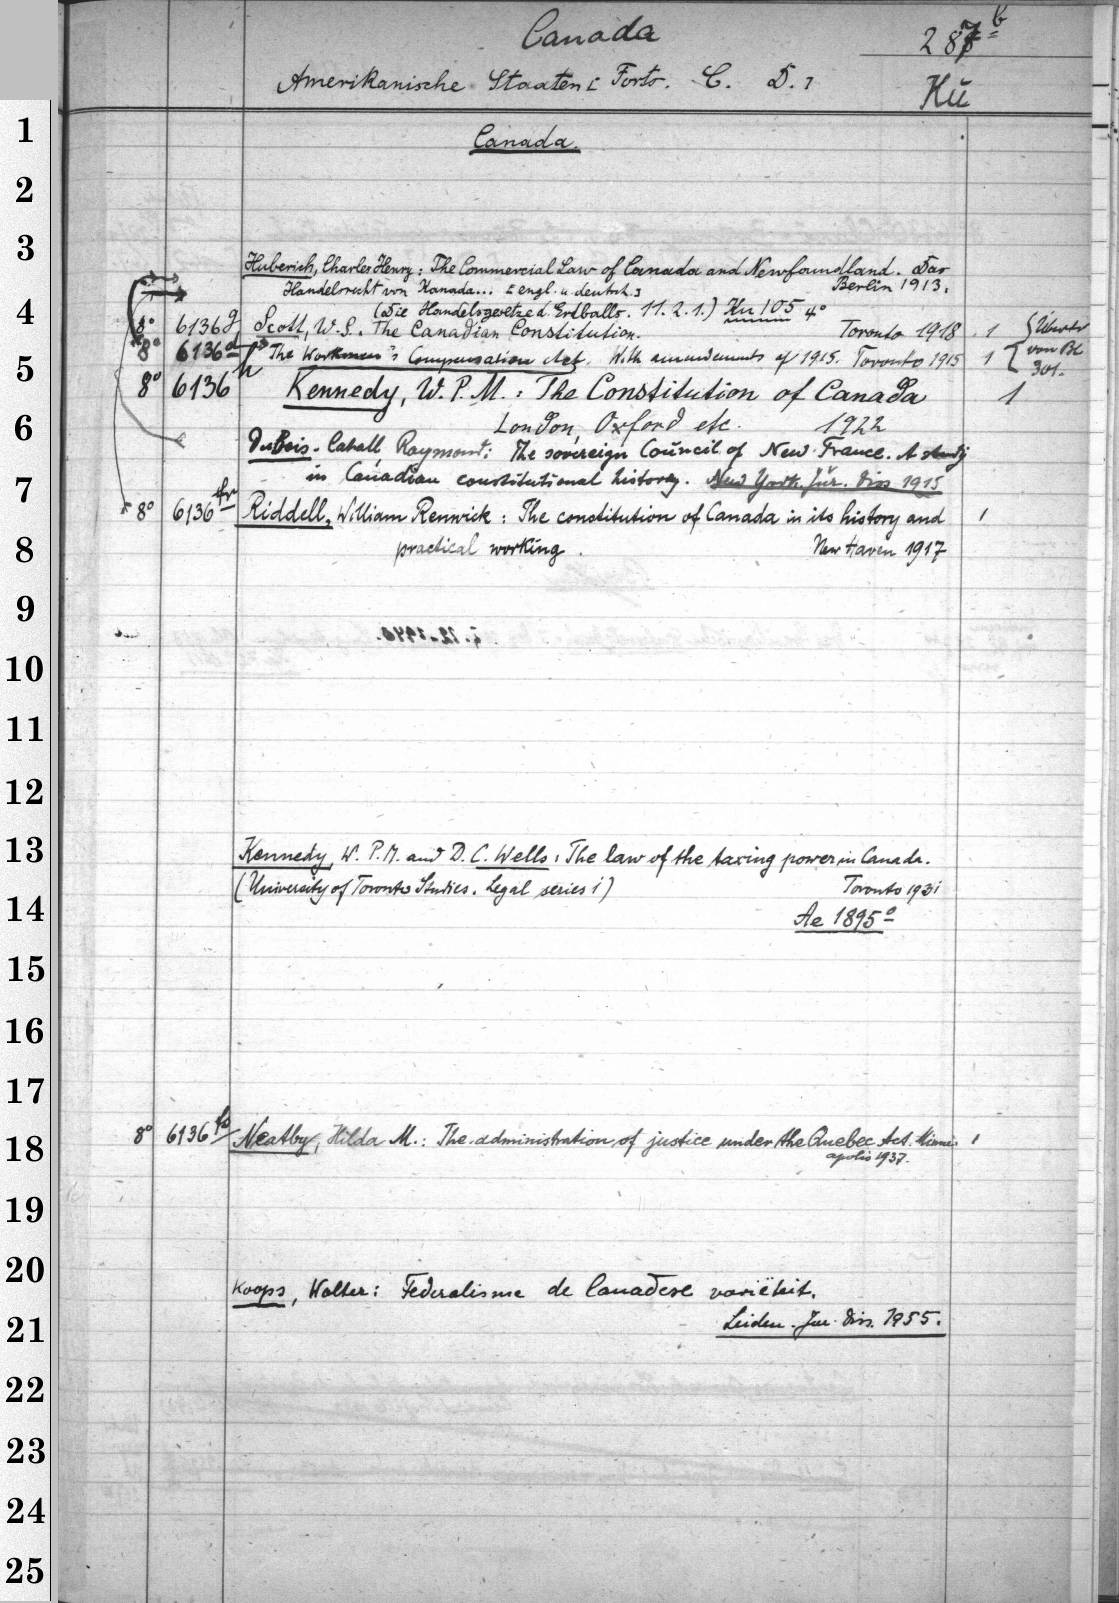 Canada
287 b
Amerikanische Staaten [Forts. C. D.]
Kü
1
Canada.
2
3
Huberich, Charles Henry: The Commercial Law of Canada and Newfoundland. Das
Handelsrecht von Kanada... [engl. u. deutsch.] Berlin 1913.
4
(Die Handelsgesetze d. Erdballs. 11. 2. 1.) Ku 105 4°
8° 6136 g Scott, W. S. The Canadian Constitution. Toronto 1918 1
8° 6136 The Workmen's Compensation Act. With amendments of 1915. Toronto 1915 1 von Bl. 301.
5
8° 6136 Kennedy, W. P. M.: The Constitution of Canada 1
6
London, Oxford etc. 1922
DuBois-Cahall, Raymond: The sovereign Council of New France. A study
7
in Canadian constitutional history. New York. Jur. Diss 1915
8° 6136 fr Riddell, William Renwick: The constitution of Canada in its history and 1
8
practical working. New Haven 1917
9
10
11
12
13
Kennedy, W. P. M. and D. C. Wells: The law of the taxing power in Canada.
(University of Toronto Studies. Legal series 1) Toronto 1931
14
Ae 1895°
15
16
17
8° 6136 Neatby, Hilda M.: The administration of justice under the Quebec Act. Minne- 1
18
apolis 1937.
19
20
Koops, Wolter: Federalisme de Canadese variëteit.
21
Leiden. Jur. Diss. 1955.
22
23
24
25